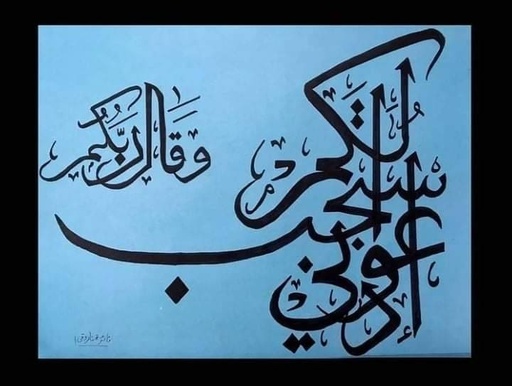 وَقَالَ رَبُّكُمْ
ادْعُونِي
أَسْتَجِبْ
لَكُمْ